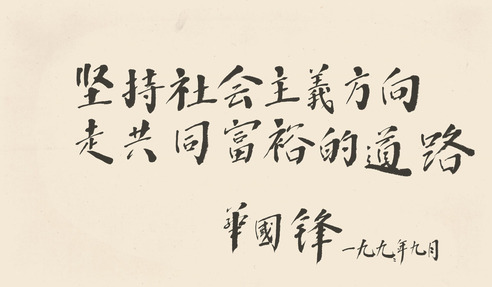 坚持社会主義方向
走共同富裕的道路
華國锋 一九九年九月